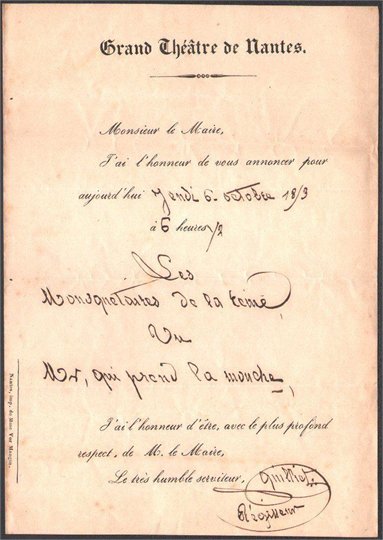 Grand Théâtre de Nantes.
Monsieur le Maire,
J'ai l'honneur de vous annoncer pour
aujourd'hui Jeudi 6 octobre
à 6 heures 1/2
Les
Mousquetaires de la Reine
Un
Mr, qui prend la mouche,
J'ai l'honneur d'être, avec le plus profond
respect, de M. le Maire,
Le très humble serviteur,
Régisseur
Nantes, imp. de